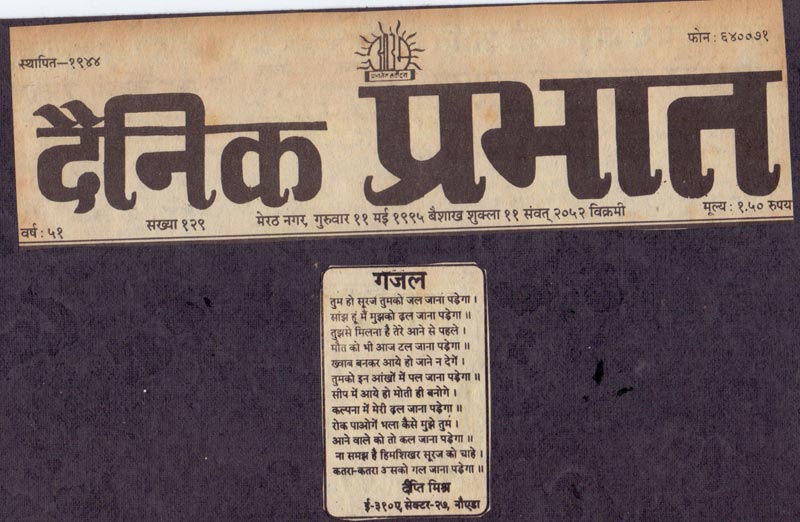 स्थापित—१९४४
फोन : ६४००७१
दैनिक प्रभात
वर्ष : ५१
संख्या १२९
मेरठ नगर, गुरुवार ११ मई १९९५ बैशाख शुक्ला ११ संवत् २०५२ विक्रमी
मूल्य : १.५० रुपय
गजल
तुम हो सूरज तुमको जल जाना पड़ेगा ।
सांझ हूं मैं मुझको ढ़ल जाना पड़ेगा ॥
तुझसे मिलना है तेरे आने से पहले ।
मौत को भी आज टल जाना पड़ेगा ॥
ख्वाब बनकर आये हो जाने न देगें ।
तुमको इन आंखों में पल जाना पड़ेगा ॥
सीप में आये हो मोती ही बनोगे ।
कल्पना में मेरी ढ़ल जाना पड़ेगा ॥
रोक पाओगें भला कैसे मुझे तुम ।
आने वाले को तो कल जाना पड़ेगा ॥
ना समझ है हिमशिखर सूरज को चाहे ।
कतरा-कतरा उसको गल जाना पड़ेगा ॥
दीप्ति मिश्र
ई-३१०ए, सेक्टर-२७, नौएडा